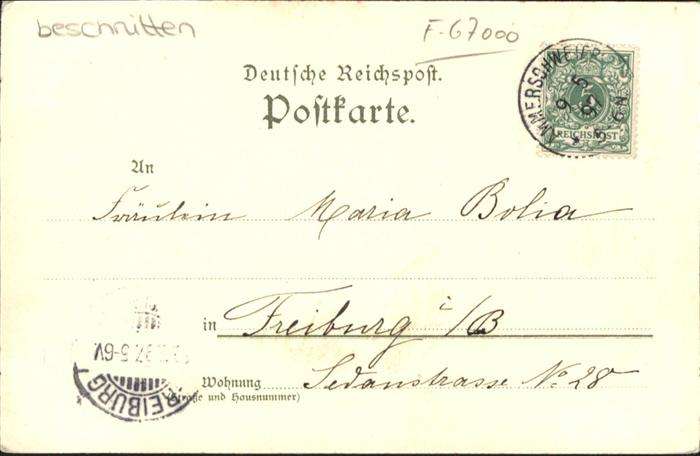 beschnitten
F-67000
Deutsche Reichspost.
Postkarte.
AMMERSCHWEIER
9 5
5
REICHSPOST
An
Fräulein Maria Bolia
in Freiburg i/B
97 5-6V
FREIBURG
Wohnung Sedanstrasse No 28
(Straße und Hausnummer)